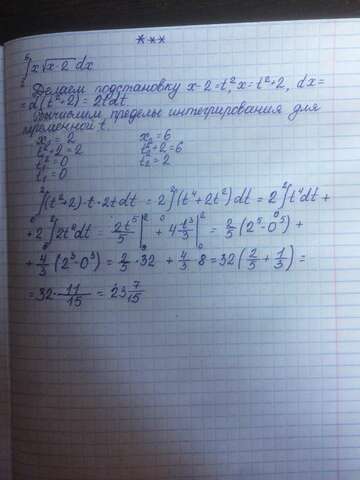 ***
∫x√x-2 dx
Делаем подстановку x-2=t², x=t²+2, dx=
=d(t²+2)=2tdt
Вычислим пределы интегрирования для
переменной t.
x₁=2 x₂=6
t₁²+2=2 t₂²+2=6
t₁²=0 t₂=2
t₁=0
₀²∫(t²+2)·t·2tdt = 2₀²∫(t⁴+2t²)dt = 2₀²∫t⁴dt +
+2₀²∫2t²dt = 2t⁵/5|₀² + 4t³/3|₀² = 2/5(2⁵-0⁵)+
+4/3(2³-0³) = 2/5·32 + 4/3·8 = 32(2/5+1/3) =
=32·11/15 = 23 7/15